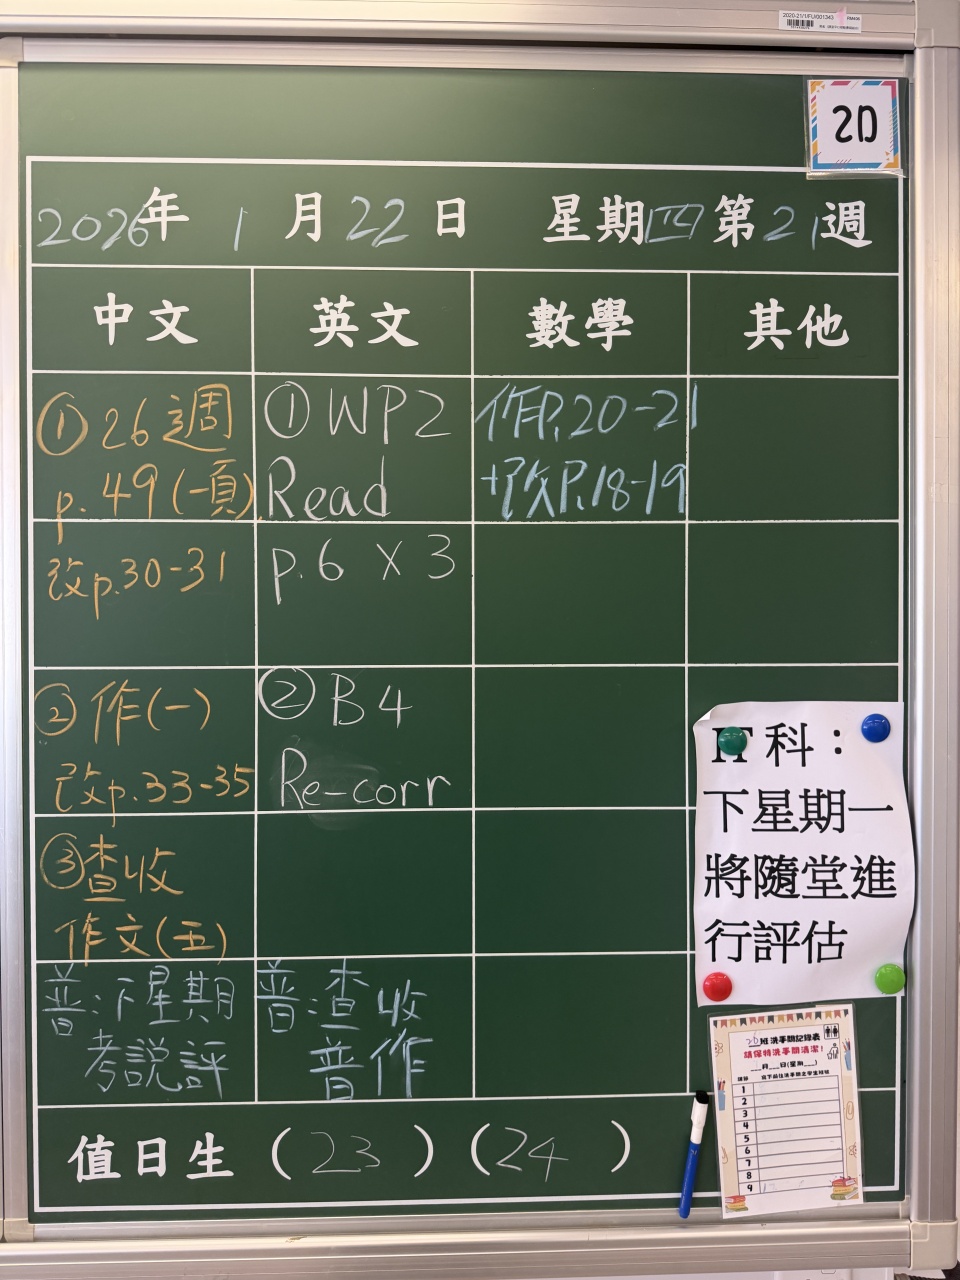 2020-21/1/FU/001343
2D
2026年 1月22日 星期四 第21週
中文 英文 數學 其他
①26週
p.49(一頁)
改p.30-31
②作(一)
改p.33-35
③查收
作文(五)
普:下星期
考説評
①WP2
Read
p.6 x 3
②B4
Re-corr
普:查收
普作
作P.20-21
+改P.18-19
IT科：
下星期一
將隨堂進
行評估
2D班洗手間記錄表
請保持洗手間清潔！
___月___日(星期___)
1
2
3
4
5
6
7
8
9
值日生 (23) (24)